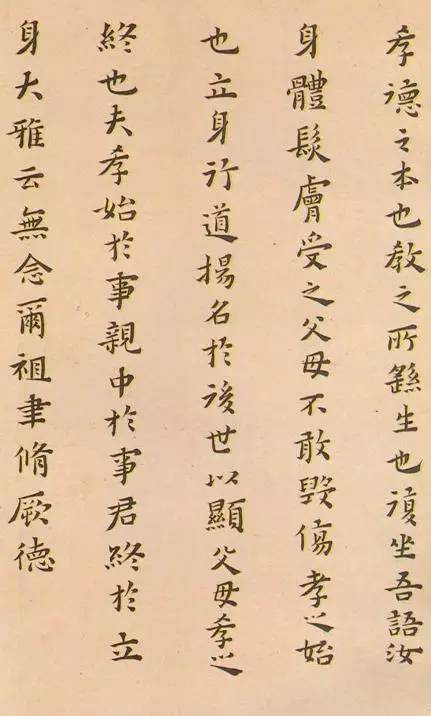 孝德之本也教之所繇生也復坐吾語汝
身體髮膚受之父母不敢毀傷孝之始
也立身行道揚名於後世以顯父母孝之
終也夫孝始於事親中於事君終於立
身大雅云無念爾祖聿脩厥德